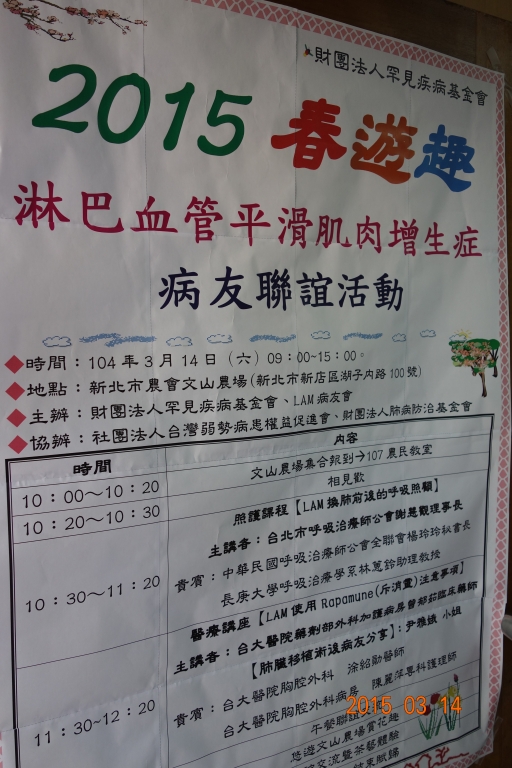 財團法人罕見疾病基金會
2015 春遊趣
淋巴血管平滑肌肉增生症
病友聯誼活動
◆時間：104 年 3 月 14 日（六）09：00~15：00。
◆地點：新北市農會文山農場(新北市新店區湖子內路 100 號)
◆主辦：財團法人罕見疾病基金會、LAM 病友會
◆協辦：社團法人台灣弱勢病患權益促進會、財團法人肺病防治基金會
時間 內容
10：00～10：20 文山農場集合報到→107 農民教室
10：20～10：30 相見歡
10：30～11：20 照護課程【LAM 換肺前後的呼吸照顧】
主講者：台北市呼吸治療師公會謝慧觀理事長
貴賓：中華民國呼吸治療師公會全聯會楊玲玲秘書長
長庚大學呼吸治療學系林蔥鈴助理教授
醫療講座【LAM 使用 Rapamune(斥消靈)注意事項】
主講者：台大醫院藥劑部外科加護病房曾郁茹臨床藥師
11：30~12：20 【肺臟移植術後病友分享】：尹雅娥 小姐
貴賓：台大醫院胸腔外科 徐紹勛醫師
台大醫院胸腔外科病房 陳麗萍專科護理師
午餐聯誼
悠遊文山農場賞花趣
交流暨茶藝體驗
賦歸
2015 03 14